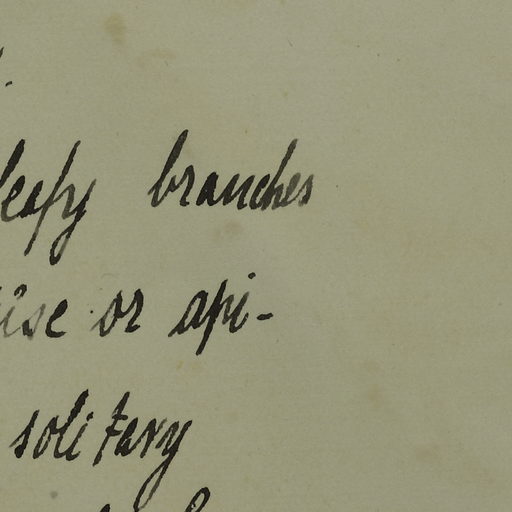 leafy branches
ise or api-
solitary